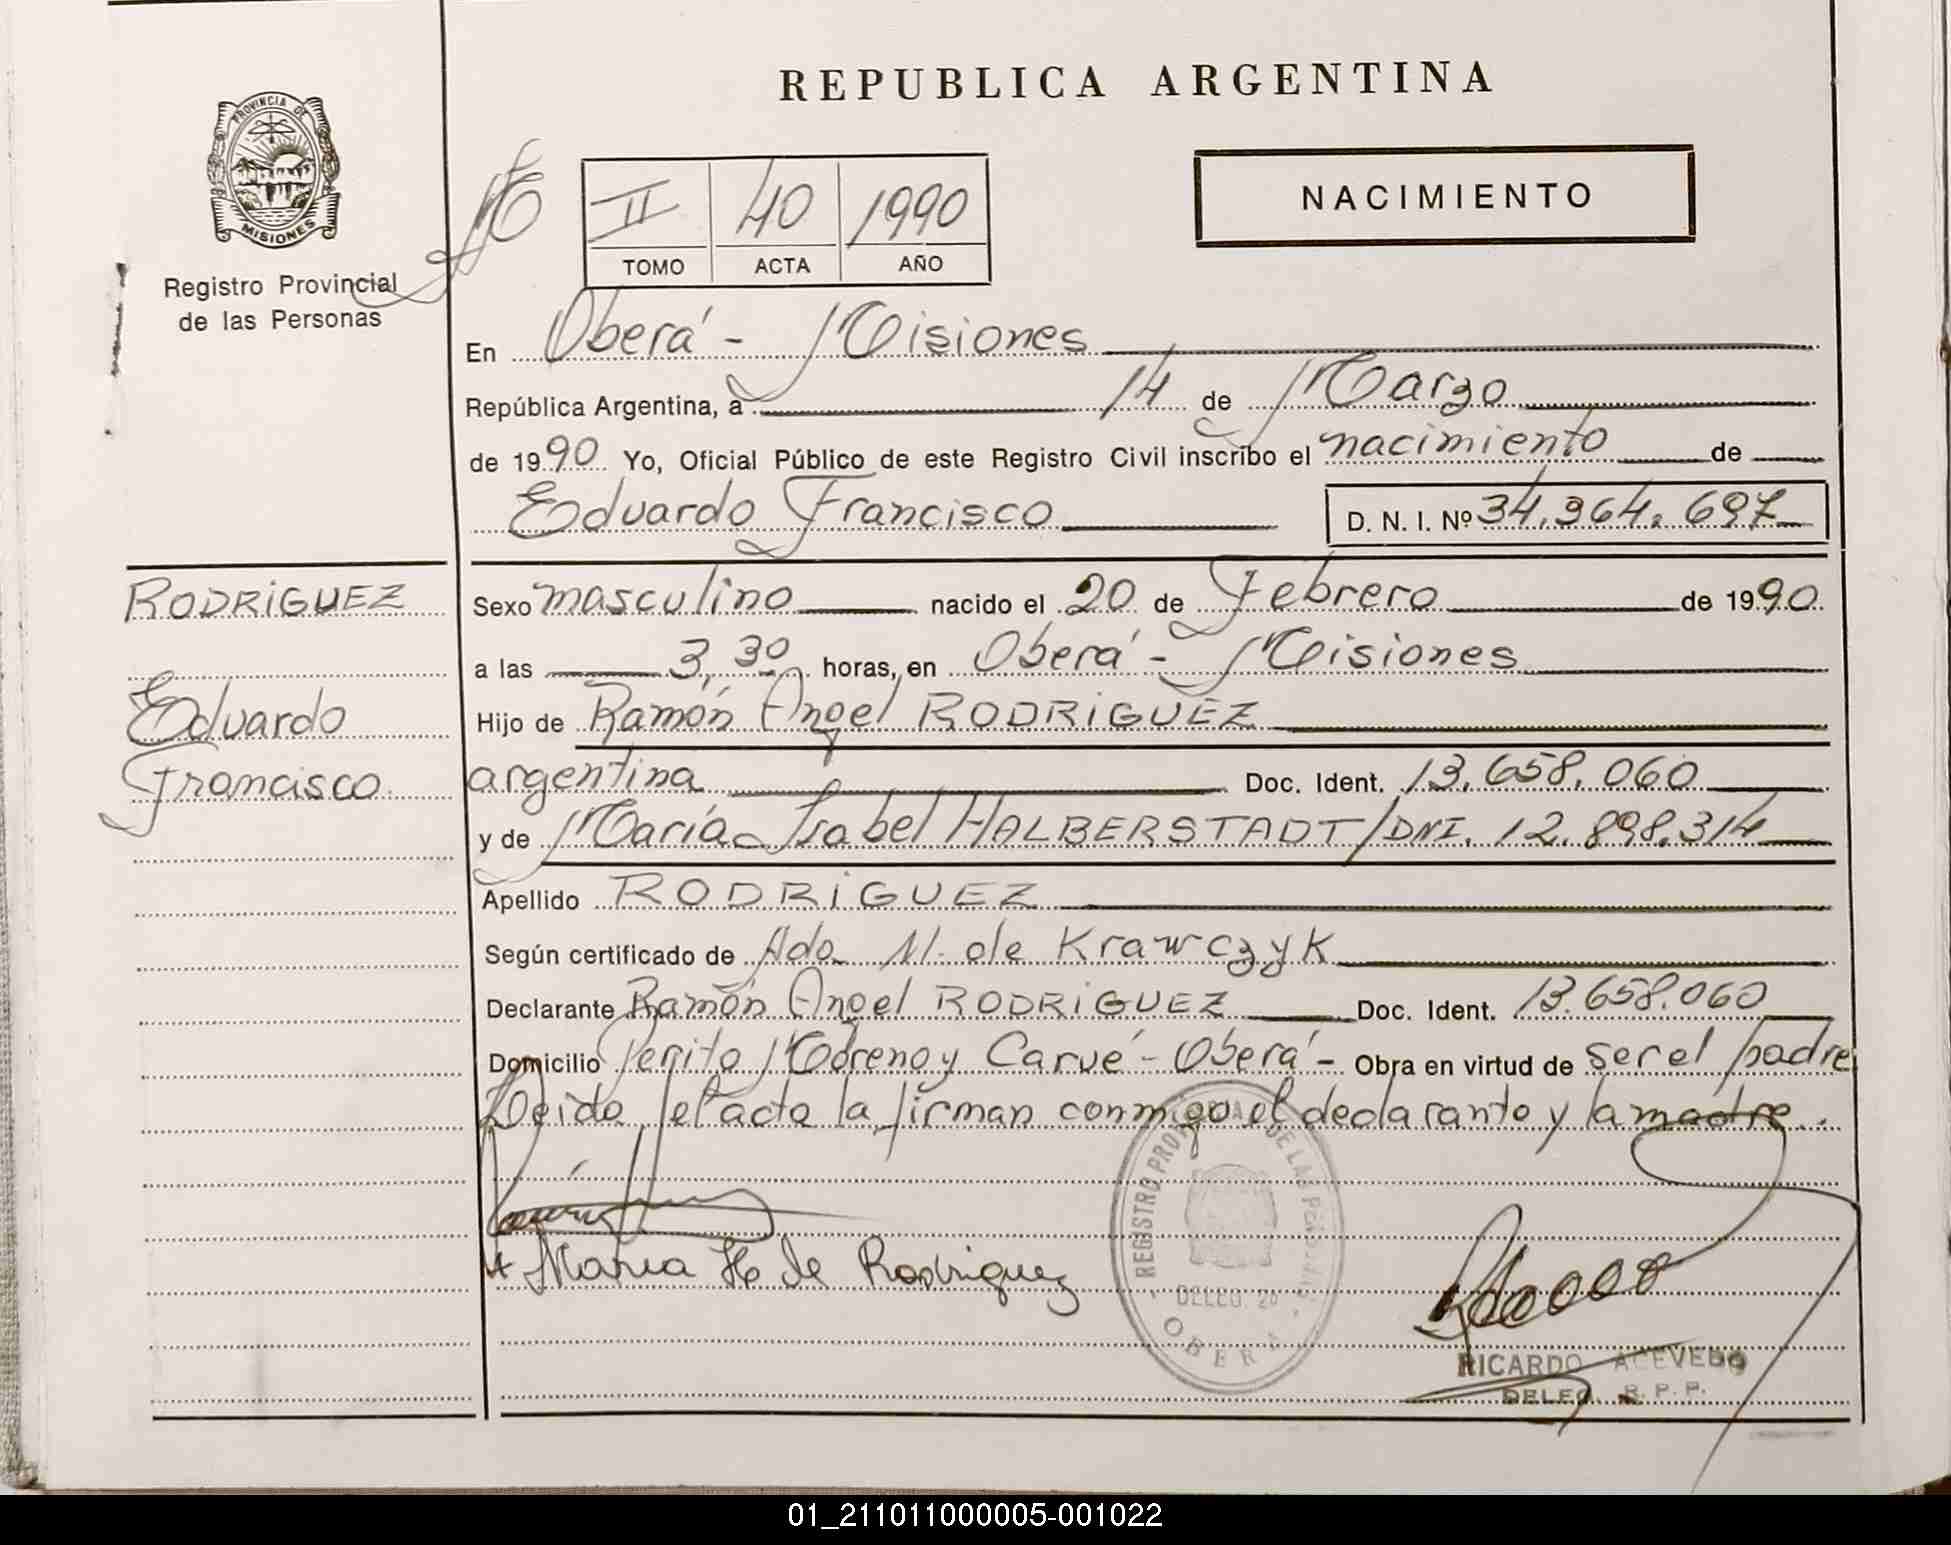 REPUBLICA ARGENTINA
PROVINCIA DE
MISIONES
Registro Provincial
de las Personas
II 40 1990
TOMO ACTA AÑO
NACIMIENTO
En Oberá - Misiones
República Argentina, a 14 de Marzo
de 1990 Yo, Oficial Público de este Registro Civil inscribo el nacimiento de
Eduardo Francisco D. N. I. Nº 34.364.697
RODRIGUEZ
Eduardo
Francisco
Sexo masculino nacido el 20 de Febrero de 1990
a las 3,30 horas, en Oberá - Misiones
Hijo de Ramón Angel RODRIGUEZ
argentina Doc. Ident. 13.658.060
y de María Isabel HALBERSTADT/DNI. 12.898.314
Apellido RODRIGUEZ
Según certificado de Ada N. de Krawczyk
Declarante Ramón Angel RODRIGUEZ Doc. Ident. 13.658.060
Domicilio Perito Moreno y Carué - Oberá - Obra en virtud de ser el padre
Leida el acta la firman conmigo el declarante y la madre.
Maria H de Rodriguez
REGISTRO PROVINCIAL DE LAS PERSONAS
DELEG. 2a
OBERA
RICARDO ACEVEDO
DELEG. R. P. P.
01_211011000005-001022